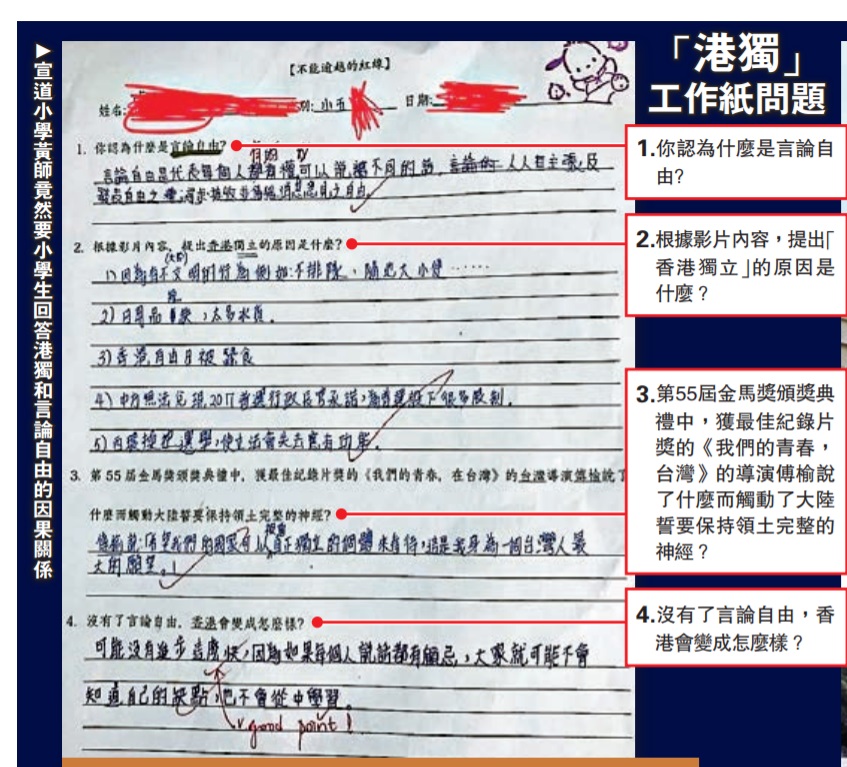 「港獨」
工作紙問題
▶宣道小學黃師竟然要小學生回答港獨和言論自由的因果關係
【不能逾越的紅線】
姓名: 別: 小五 日期:
1. 你認為什麼是言論自由?
言論自由是代表每個人都有權可以說不同的話, 人人自主張,及
發表自由之 自由
2. 根據影片內容, 提出香港獨立的原因是什麼?
1) 因為有不文明的行為例如:不排隊、隨地大小便……
2) 日用品 ,太多水貨.
3) 香港自由日被蠶食
4) 中方無法兌現2017普選行政長官承諾,為普選設下很多限制.
5) 選舉,使立法會失去應有功能.
3. 第 55 屆金馬獎頒獎典禮中, 獲最佳紀錄片獎的《我們的青春, 在台灣》的台灣導演傅榆說了
什麼而觸動大陸誓要保持領土完整的神經?
傅榆說:希望我們的國家可以真正獨立的個體來看待,這是我身為一個台灣人最
大的願望.!
4. 沒有了言論自由, 香港會變成怎麼樣?
可能沒有進步這麼快,因為如果每個人說話都有顧忌,大家就可能不會
知道自己的缺點,也不會從中學習.
v.good point!
1.你認為什麼是言論自
由?
2.根據影片內容,提出「
香港獨立」的原因是
什麼?
3.第55屆金馬獎頒獎典
禮中,獲最佳紀錄片
獎的《我們的青春,
台灣》的導演傅榆說
了什麼而觸動了大陸
誓要保持領土完整的
神經?
4.沒有了言論自由,香
港會變成怎麼樣?